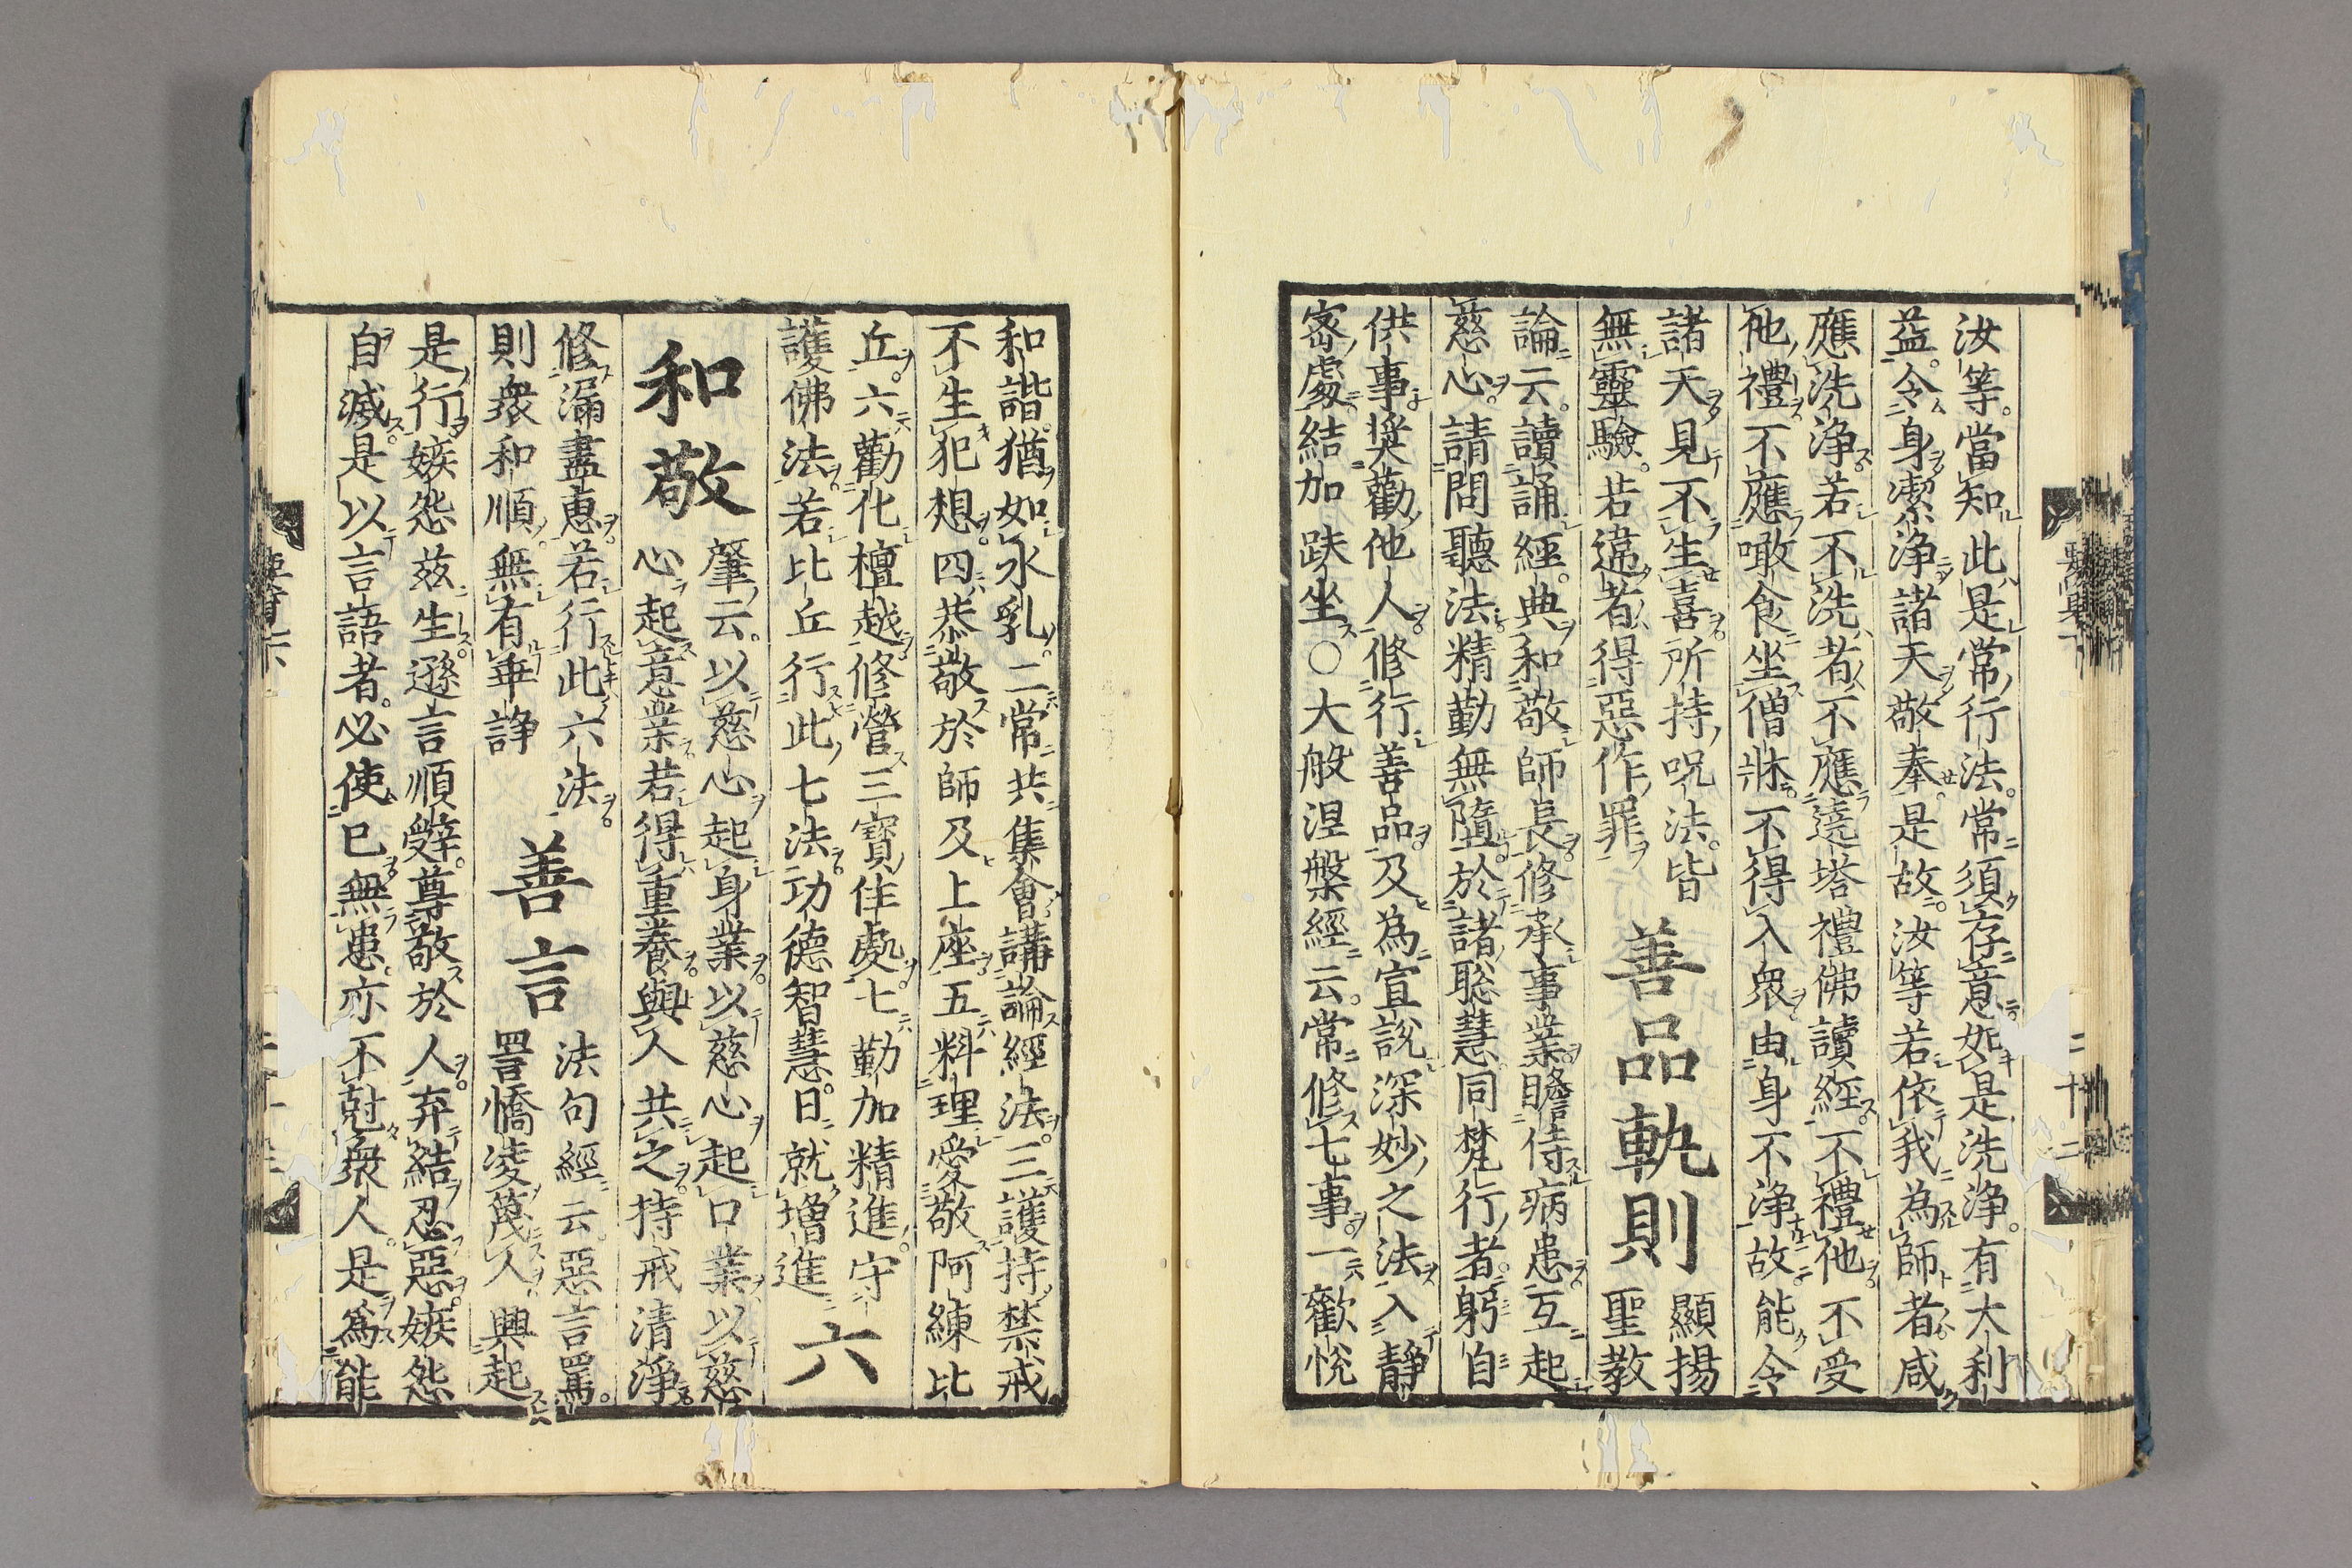 汝等。當知此是常行法。常須存意如是洗淨。有大利
益。令身潔淨諸天敬奉。是故汝等若依我為師者咸
應洗淨若不洗者不應遶塔禮佛讀經。不禮他不受
他禮不應噉食坐僧牀。不得入衆由身不淨故。能令
諸天見不生喜所持呪法。皆
無靈驗。若違者得惡作罪
善品軌則
顯揚
聖教
論云。讀誦經典和敬師長。修承事業瞻侍病患互起
慈心。請問聽法精勤無墮於諸聡慧同梵行者。躬自
供事奨勸他人修行善品及為宣說深妙之法入靜
密處結加趺坐○大般涅槃經云。常修七事。一歡悅
和諧。猶如水乳。二常共集會講論經法。三護持禁戒
不生犯想。四恭敬於師及上座五料理愛敬阿練比
丘。六勸化檀越修營三寶住處。七勤加精進。守
護佛法。若比丘行此七法功德智慧。日就增進
六
和敬
肇云。以慈心起身業。以慈心起口業。以慈
心起意業。若得重養與人共之。持戒清淨
修漏盡恵。若行此六法。
則衆和順。無有乖諍
善言
法句經云。惡言罵。
詈憍凌蔑人。興起
是行嫉怨茲生。遜言順辭。尊敬於人。弃結忍惡。嫉怨
自滅。是以言語者。必使已無患。亦不尅衆人。是為能
二十二